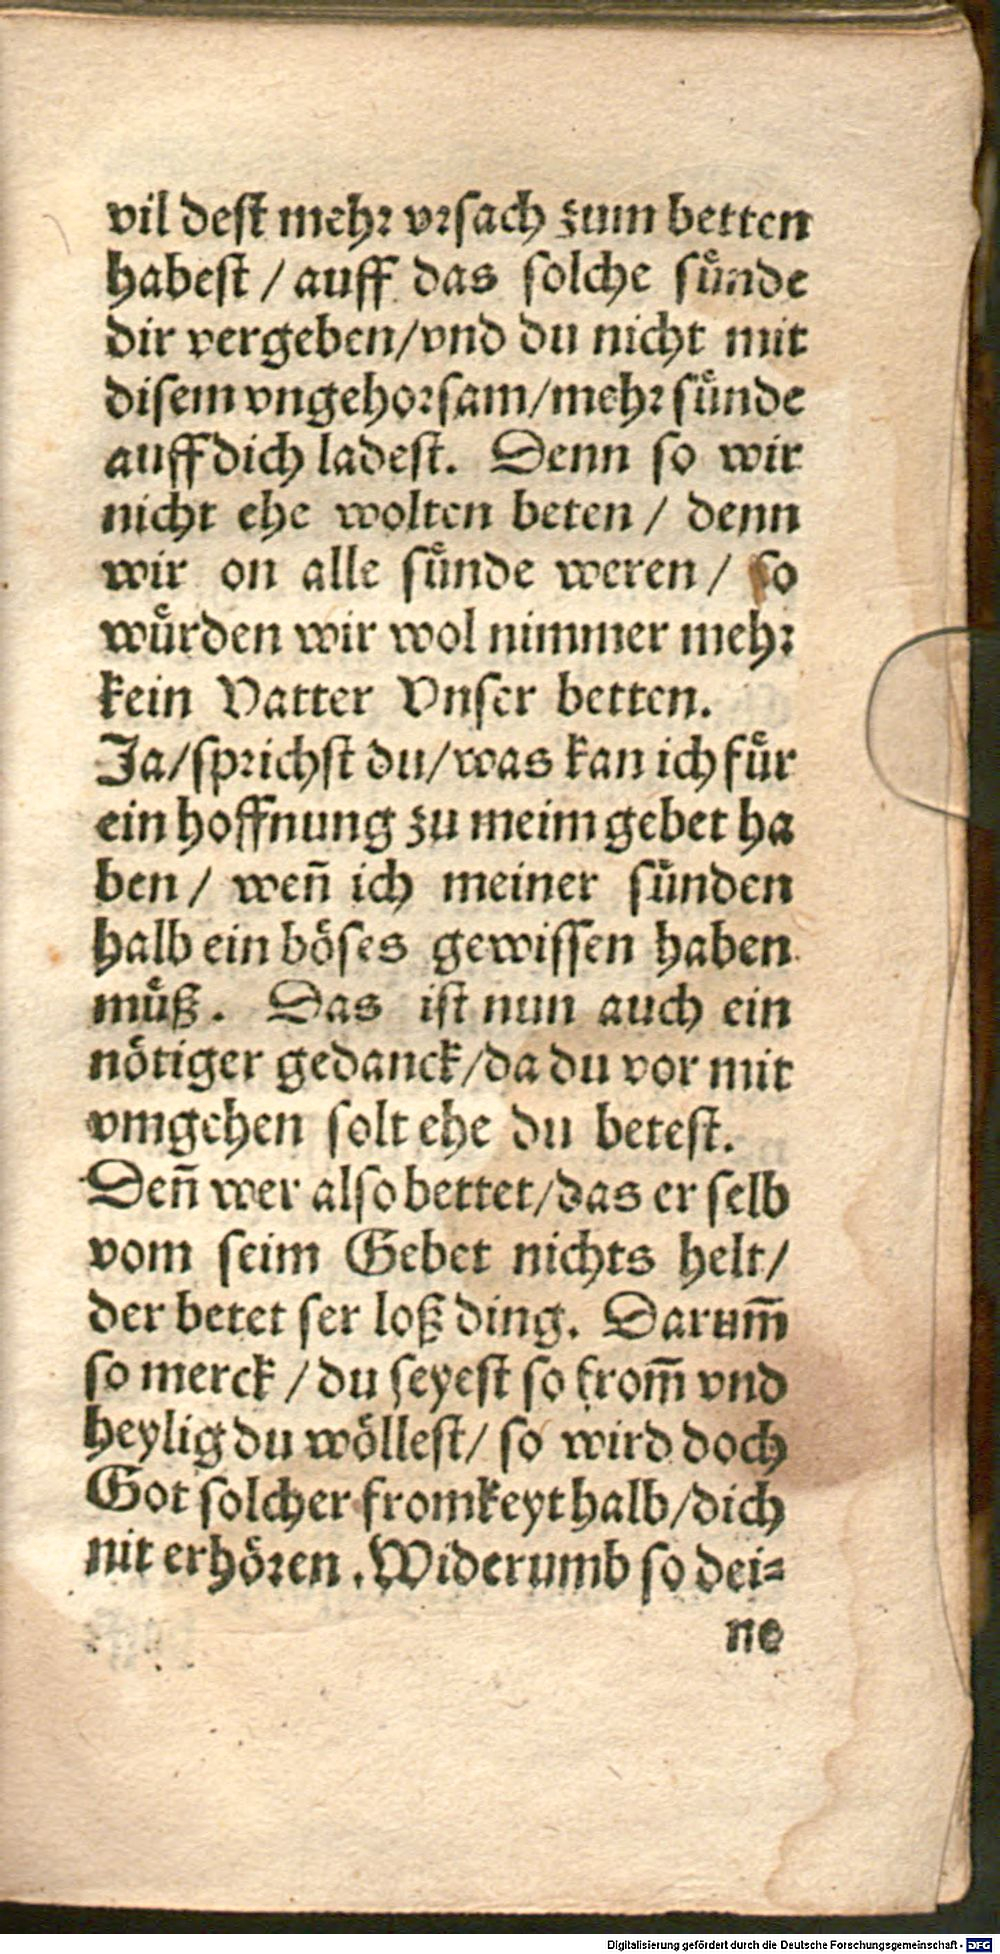 vil dest mehr vrsach zum betten
habest / auff das solche suͤnde
dir vergeben/vnd du nicht mit
disem vngehorsam/mehr suͤnde
auff dich ladest. Denn so wir
nicht ehe wolten beten / denn
wir on alle suͤnde weren / so
wuͤrden wir wol nimmer mehr
kein Vatter Vnser betten.
Ja/sprichst du/was kan ich fuͤr
ein hoffnung zu meim gebet ha
ben / weñ ich meiner suͤnden
halb ein boͤses gewissen haben
muͤß. Das ist nun auch ein
noͤtiger gedanck/da du vor mit
vmgehen solt ehe du betest.
Deñ wer also bettet/das er selb
vom seim Gebet nichts helt/
der betet ser loß ding. Darum̃
so merck / du seyest so from̃ vnd
heylig du woͤllest/ so wird doch
Got solcher fromkeyt halb/dich
nit erhoͤren. Widerumb so dei-
ne
Digitalisierung gefördert durch die Deutsche Forschungsgemeinschaft - DFG